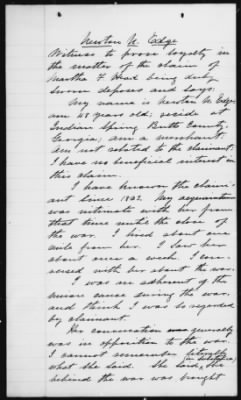 Newton N. Edge
Witness to prove loyalty in
the matter of the claim of
Martha F. Head being duly
sworn deposes and says:
My name is Newton N Edge
am 48 years old; reside at
Indian Spring Butts County,
Georgia; am a merchant.
Am not related to the claimant.
I have no beneficial interest in
this claim.
I have known the claim-
ant since 1852. My acquaintance
was intimate with her from
that time until the close of
the war. I lived about one
mile from her. I saw her
about once a week. I con-
versed with her about the war.
I was an adherent of the
Union cause during the war,
and think I was so regarded
by claimant.
Her conversation was generally
was in opposition to the war.
I cannot remember literally
what she said. She said, she
believed the war was brought